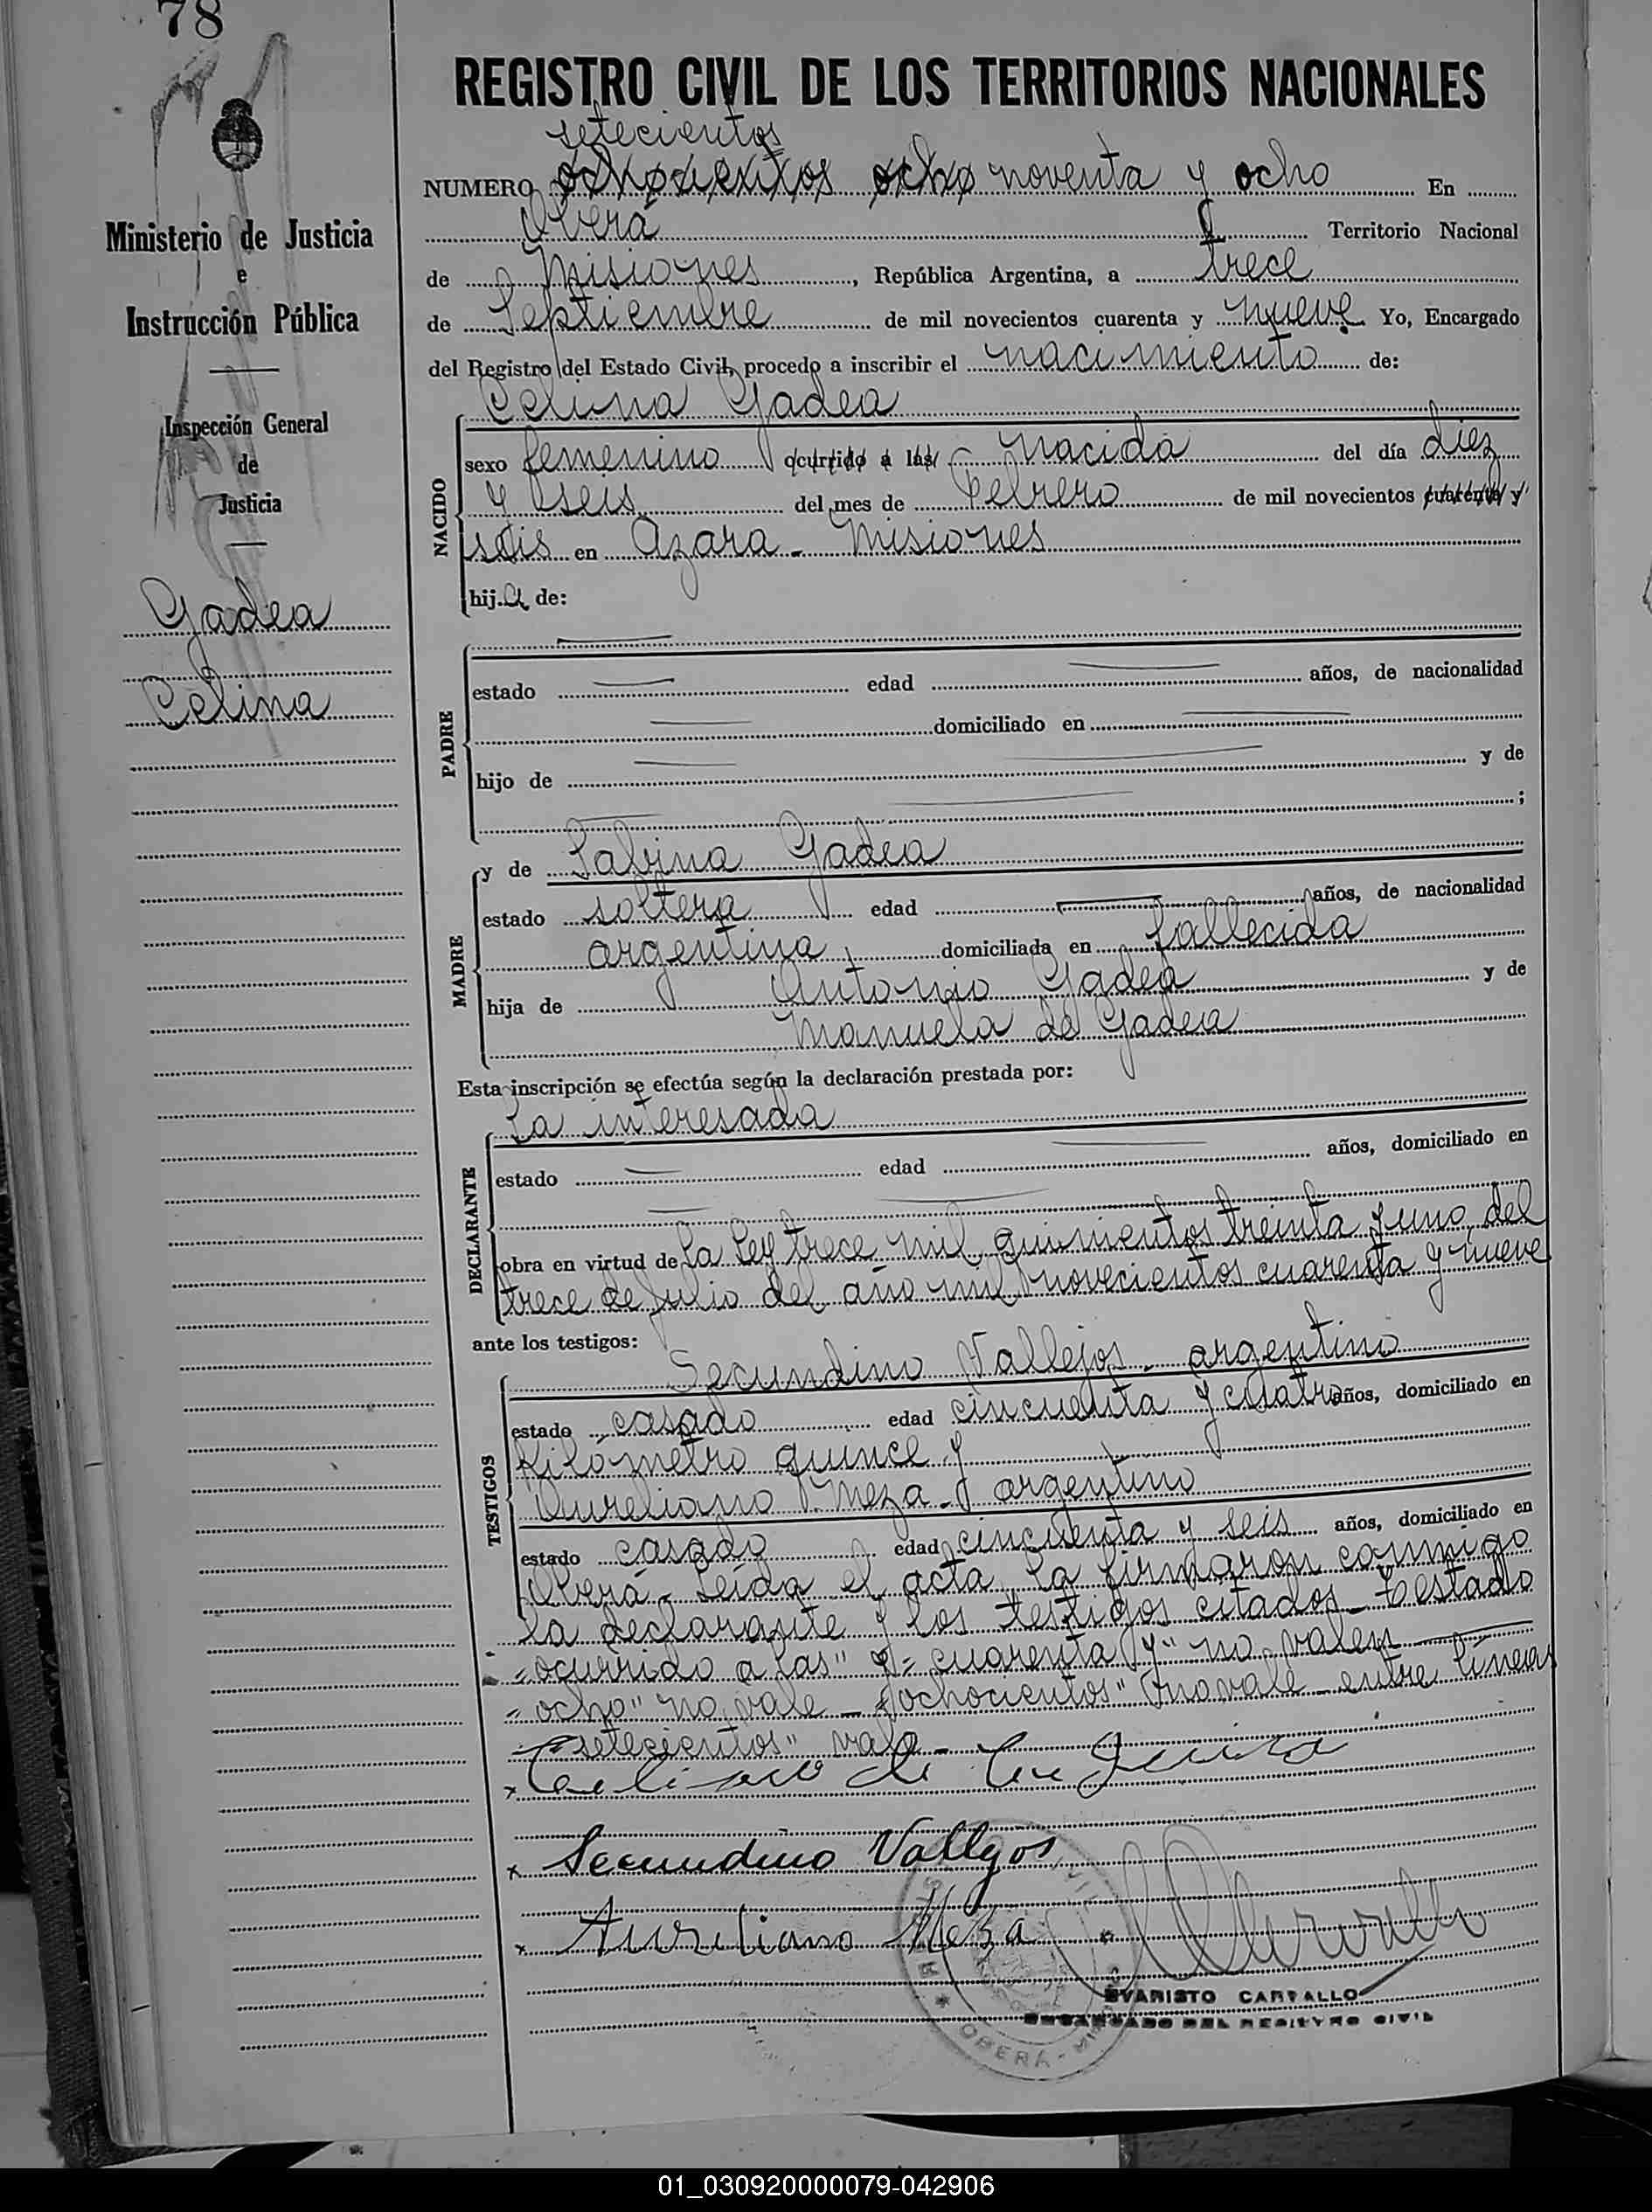 78
REGISTRO CIVIL DE LOS TERRITORIOS NACIONALES
Ministerio de Justicia
e
Instrucción Pública
Inspección General
de
Justicia
Gadea
Celina
setecientos
NUMERO ochocientos ocho noventa y ocho En
Oberá Territorio Nacional
de Misiones, República Argentina, a trece
de Septiembre de mil novecientos cuarenta y nueve. Yo, Encargado
del Registro del Estado Civil, procedo a inscribir el nacimiento de:
Celina Gadea
NACIDO
sexo femenino ocurrido a las nacida del día diez
y seis del mes de Febrero de mil novecientos cuarenta y
seis en Azara - Misiones
hij.a de:
PADRE
estado edad años, de nacionalidad
domiciliado en
hijo de y de
;
MADRE
y de Sabina Gadea
estado soltera edad años, de nacionalidad
argentina, domiciliada en fallecida
hija de Antonio Gadea y de
Manuela de Gadea
Esta inscripción se efectúa según la declaración prestada por:
DECLARANTE
La interesada
estado edad años, domiciliado en
obra en virtud de la Ley trece mil quinientos treinta y uno del
trece de Julio del año mil novecientos cuarenta y nueve
ante los testigos:
TESTIGOS
Secundino Vallejos - argentino
estado casado edad cincuenta y cuatro años, domiciliado en
Kilómetro quince y
Aureliano Meza - argentino
estado casado edad cincuenta y seis años, domiciliado en
Oberá - Leída el acta, la firmaron conmigo
la declarante y los testigos citados - Testado
"ocurrido a las" y "cuarenta y" no valen
"ocho" no vale - "ochocientos" no vale - entre líneas
"setecientos" vale -
x de
x Secundino Vallejos
x Aureliano Meza
EVARISTO CARVALLO
ENCARGADO DEL REGISTRO CIVIL
OBERÁ - MI
01_030920000079-042906